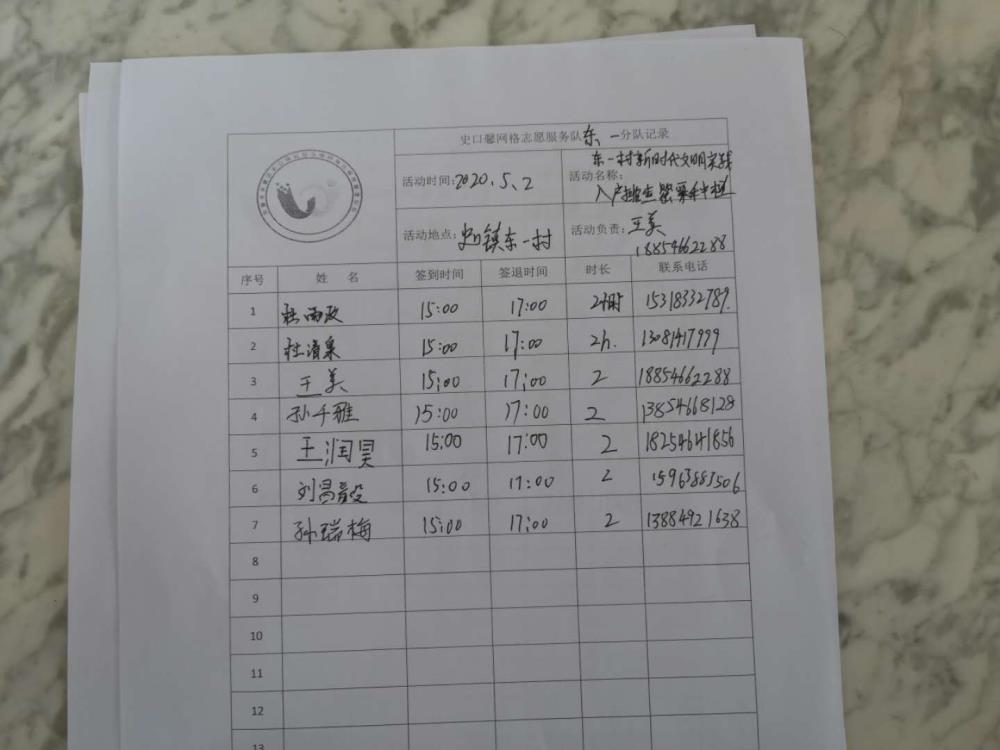 史口馨网格志愿服务队东一分队记录
活动时间:2020.5.2
东一村新时代文明实践
活动名称:
入户排查罂粟种植
活动地点:史口镇东一村
活动负责:王美
18854662288
序号 姓名 签到时间 签退时间 时长 联系电话
1 杜雨政 15:00 17:00 2小时 15318332789
2 杜清泉 15:00 17:00 2h. 13081417999
3 王美 15:00 17:00 2 18854662288
4 孙千雅 15:00 17:00 2 13854668128
5 王润昊 15:00 17:00 2 18254641856
6 刘昌毅 15:00 17:00 2 15963883506
7 孙瑞梅 15:00 17:00 2 13884921638
8
9
10
11
12
13